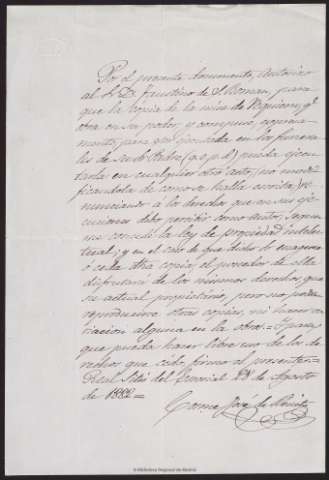 Por el presente documento, autorizo
al S. D. Faustino de S. Roman, para
que la copia de la misa de Requiem, q.e
obra en su poder, y compuse, expresa-
mente para ser ejecutada en los funera-
les de su S. Padre (q. s. g. h.) pueda ejecu-
tarla en cualquier otro acto, no modi-
ficandola de como se halla escrita, re-
nunciando á los derechos que en sus eje-
cuciones debo percibir como autor, segun
me concede la ley de propiedad intelec-
tual; y en el caso de que dicho lo enagenara
o ceda dicha copia, el poseedor de ella
disfrutará de los mismos derechos que
su actual propietario, pero no podrá
reproducirse otras copias, ni hacer va-
riacion alguna en la obra.= Y para
que pueda hacer libre uso de los de-
rechos que cedo firmo el presente=
Real Sitio del Escorial de Agosto
de 1882=
Cosme José de Benito
©Biblioteca Regional de Madrid